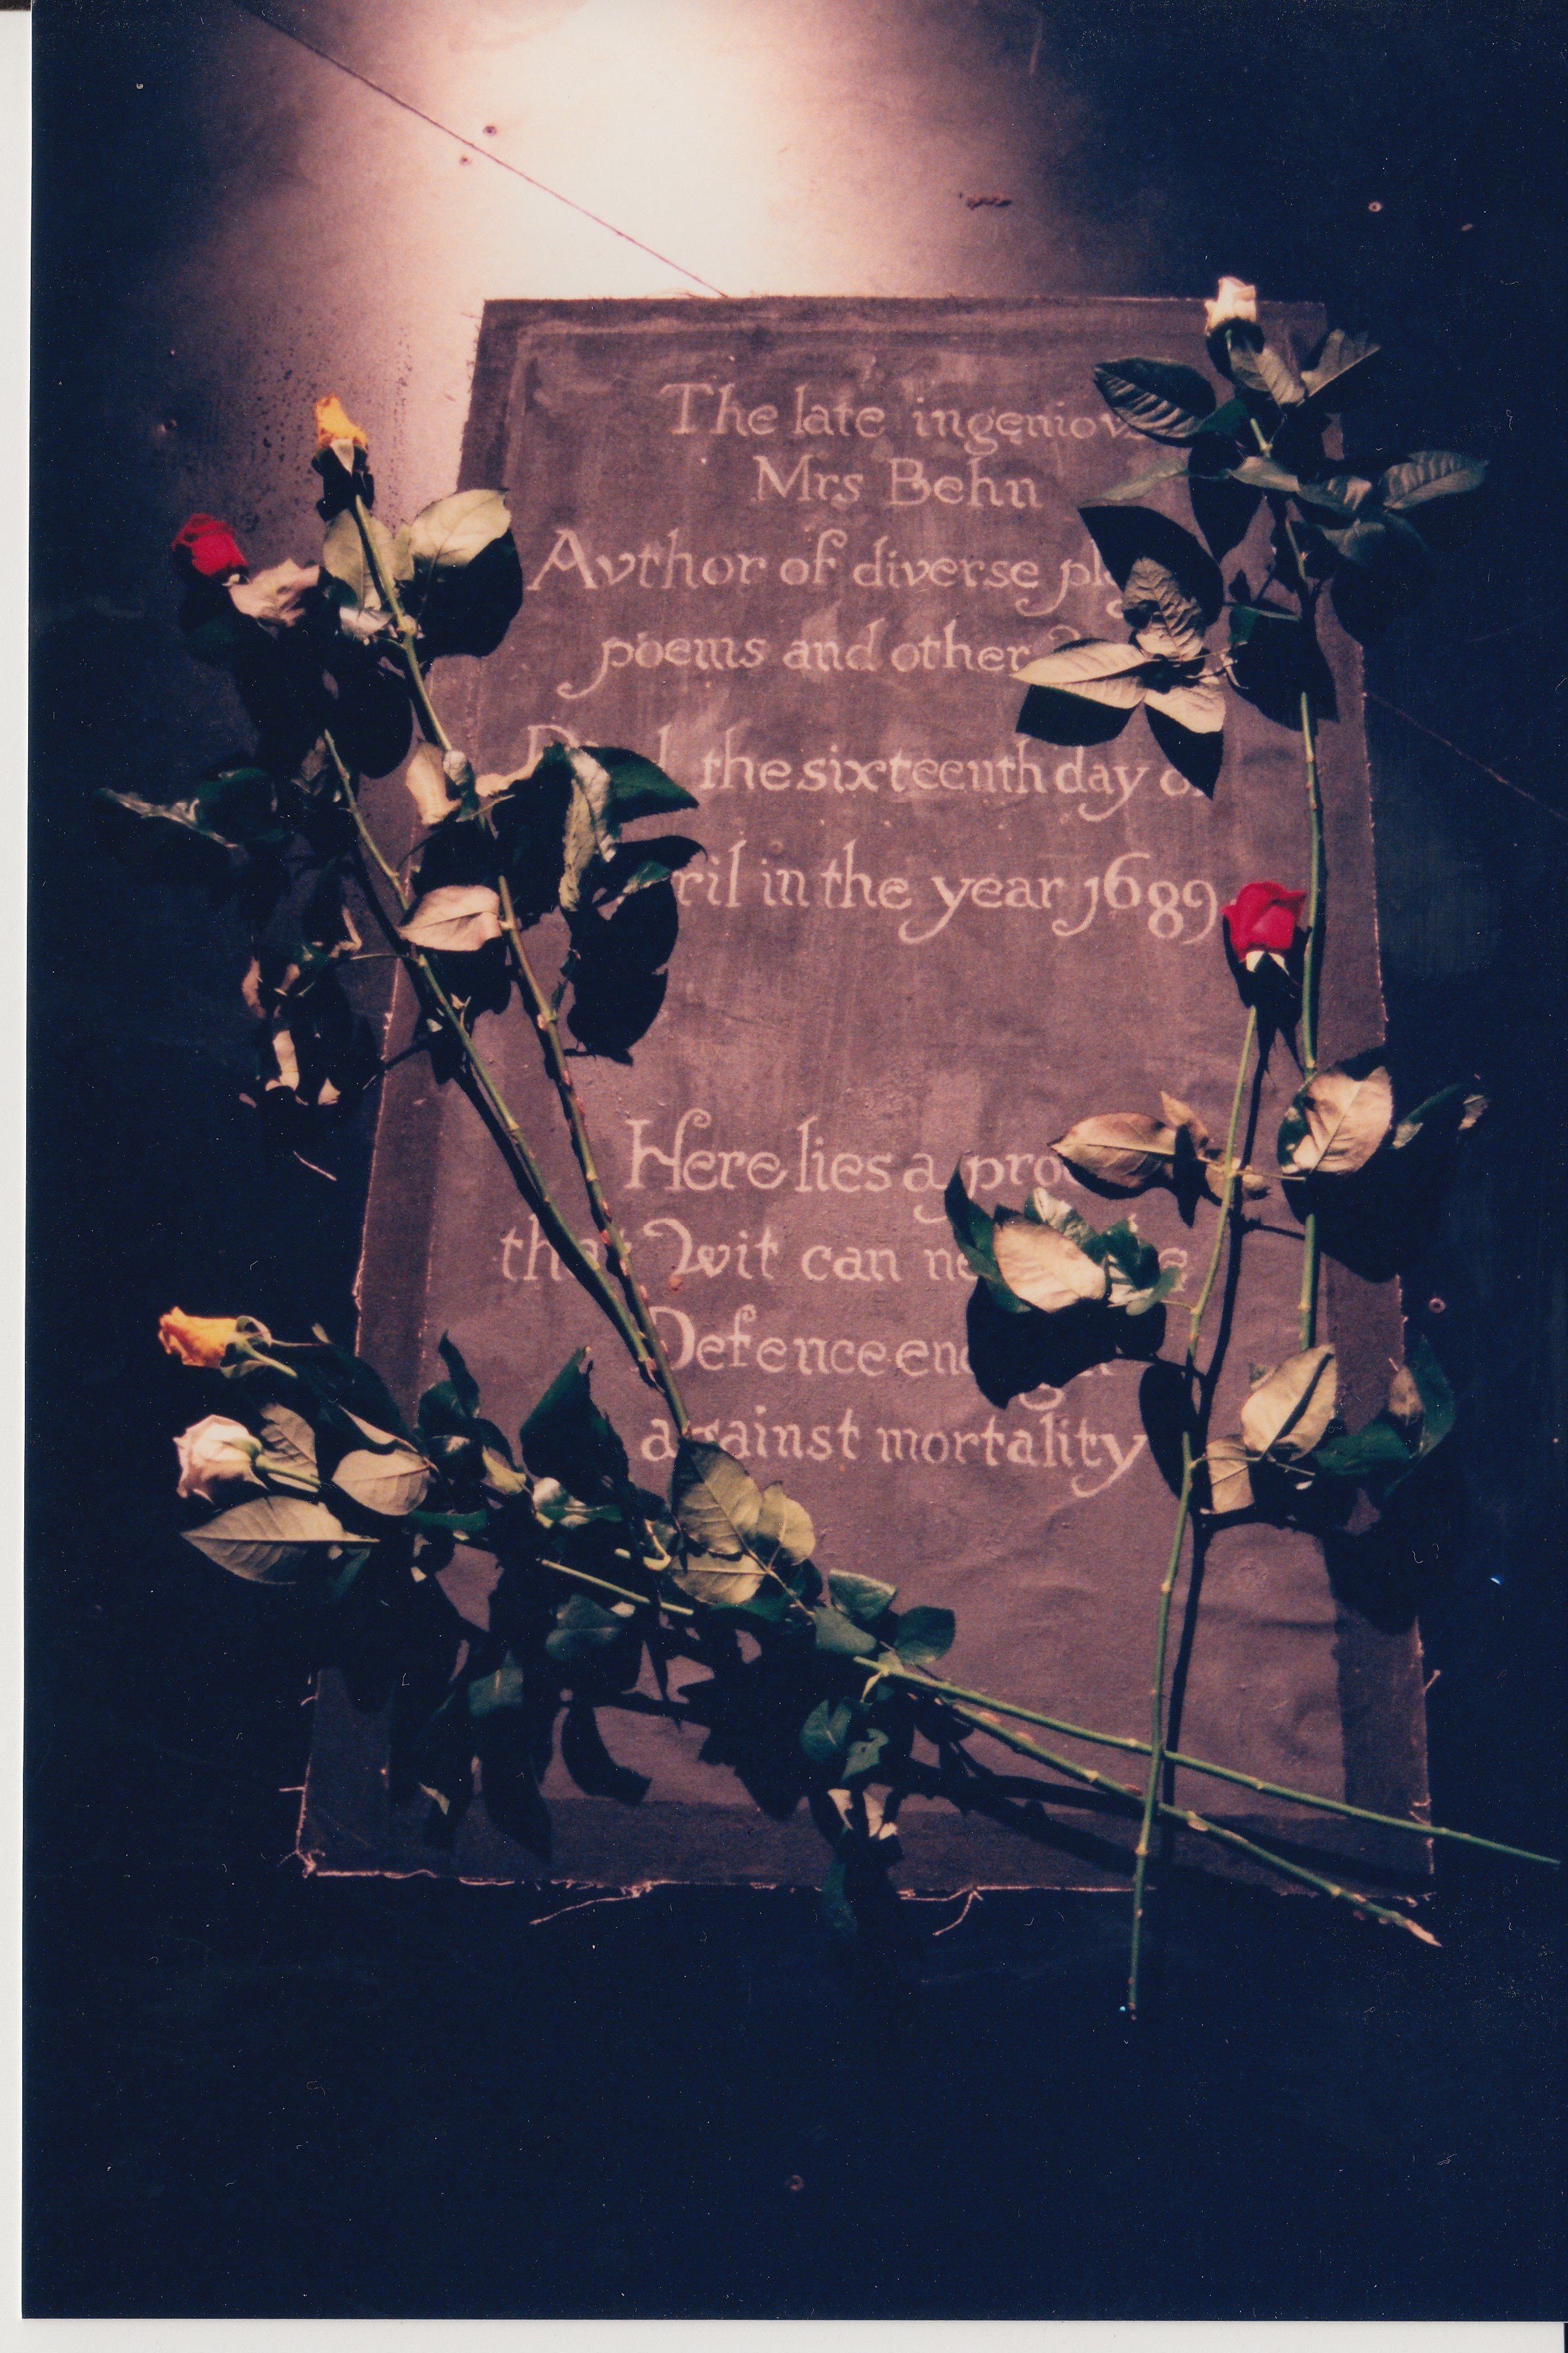 The late ingeniov
Mrs Behn
Avthor of diverse pl
poems and other
the sixteenth day o
ril in the year 1689
Here lies a pro
that Wit can ne e
Defence eno
against mortality